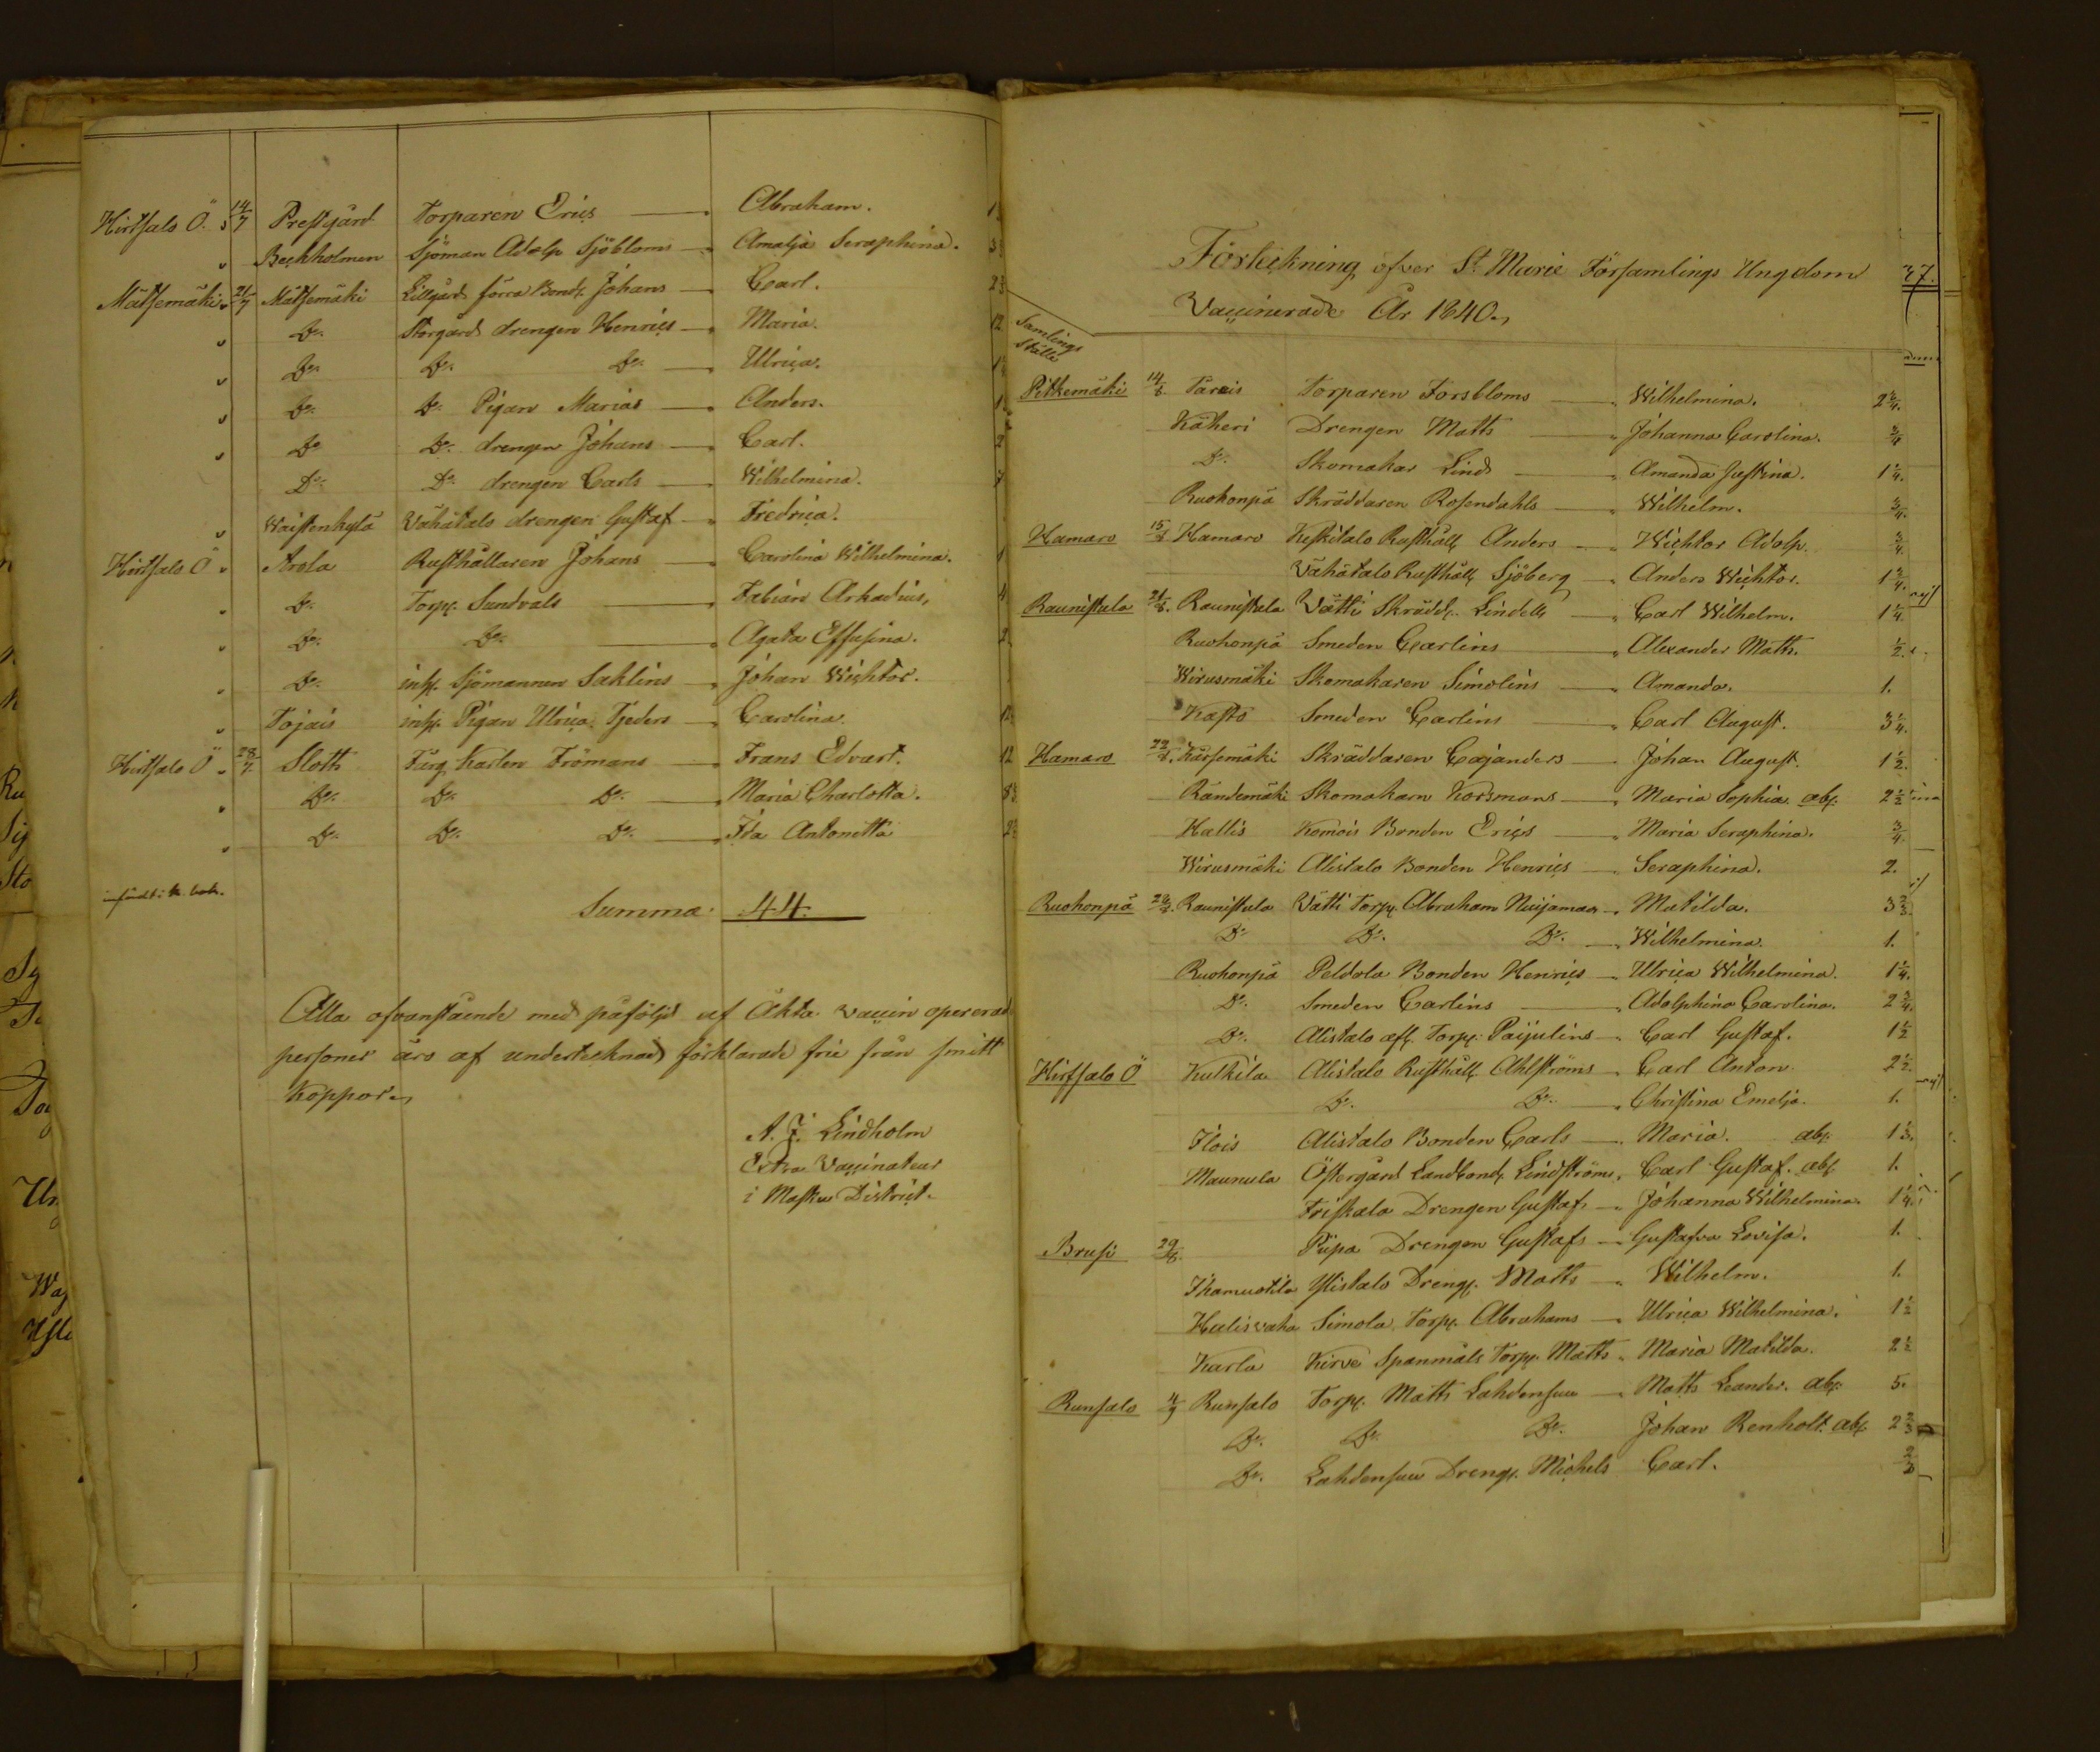 Hirtsalo Ö. 14/7 Prestgård Torparen Erics — Abraham.
" Beckholmen Sjöman Adolp Sjöbloms — Amalja Seraphina. 3
Mätsemäki 21/7 Mätsemäki Lillgård förra Bond. Johans — Carl. 2
" Do Storgård drengen Henrics — Maria. 12
" Do Do Do — Ulrica.
" Do Do Pigan Marias — Anders.
" Do Do drengen Johans — Carl. 2
Do Do drengen Carls — Wilhelmina.
" Waistenkylä Vähätalo drengen Gustaf — Fredrica.
Hirtsalo Ö " Arola Rusthållaren Johans — Carolina Wilhelmina.
" Do Torp. Sundvals — Fabian Arkadius, 4
" Do Do — Agata Effusina.
" Do inh. Sjömannen Saklins — Johan Wichtor.
" Tojais inh. Pigan Ulrica Tjeders — Carolina.
Hirtsalo Ö 28/7 Sloth Färg Karlen Frömans — Frans Edvart. 12
" Do Do Do — Maria Charlotta.
" Do Do Do — Ida Antonetta
infördt i k. bok.
Summa: 44.
Alla ofvanstående med påföljd af Äkta vaccin opererad
personer äro af undertecknad förklarade frie från smitt
Koppor.
A. J. Lindholm
Extra Vaccinateur
i Masku District.
Förteckning öfver St. Marie Församlings Ungdom
Vaccinerade År 1840.
37.
Samlings Ställe
Pitkemäki 14/8 Tareis Torparen Forsbloms — Wilhelmina. 2 3/4.
Käheri Drengen Matts — Johanna Carolina. 3/4
Do. Skomakar Linds — Amanda Justina. 1 1/4.
Ruohonpä Skräddaren Rosendahls — Wilhelm. 3/4.
Hamaro 15/8 Hamaro Keskitalo Rusthåll Anders — Wichtor Adolp. 3/4.
Vähätalo Rusthåll Sjöberg — Anders Wichtor. 1 3/4.
Raunistula 21/8. Raunistula Vätti Skrädd. Lindells — Carl Wilhelm. 1 1/4.
Ruohonpä Smeden Carlins — Alexander Matts. 1/2.
Wirusmäki Skomakaren Simolins — Amanda. 1.
Kasto Smeden Carlins — Carl August. 3 1/4.
Hamaro 22/8. Kärsemäki Skräddaren Cajanders — Johan August. 1 1/2.
Rändemäki Skomakarn Korsmans — Maria Sophia. abs. 2 1/2
Hallis Komois Bonden Erics — Maria Seraphina. 3/4.
Wirusmäki Alistalo Bonden Henrics — Seraphina. 2.
Ruohonpä 28/8. Raunistula Vätti Torp. Abraham Nuijamaa — Matilda. 3 2/3.
Do Do. Do. — Wilhelmina. 1.
Ruohonpä Peldola Bonden Henrics — Ulrica Wilhelmina. 1 1/4.
Do. Smeden Carlins — Adolphina Carolina. 2 3/4.
Do. Alistalo aff. Torp. Paijulins — Carl Gustaf. 1 1/2
Hirtsalo Ö Kulkila Alistalo Rusthåll Ahlströms — Carl Anton. 2 1/2.
Do. Do. — Christina Emelja. 1.
Ilois Alistalo Bonden Carls — Maria. abs. 1 1/3.
Maunula Östergård Landbond. Lindströms " Carl Gustaf. abs. 1.
Friskala Drengen Gustaf — Johanna Wilhelmina. 1 1/4.
Brusi 29/8. Piipa Drengen Gustafs — Gustafva Lovisa. 1.
Ihamuotila Ylistalo Dreng. Matts — Wilhelm. 1.
Halisvaha Simola Torp. Abrahams — Ulrica Wilhelmina. 1 1/2
Karla Kirve Spanmåls Torp. Matts " Maria Matilda. 2 1/2
Runsalo 4/9 Runsalo Torp. Matts Lahdensuu — Matts Leander. abs. 5.
Do. Do. Do. Johan Renholt. abs. 2 2/3
Do. Lahdensuu Dreng. Michels Carl. 2/3